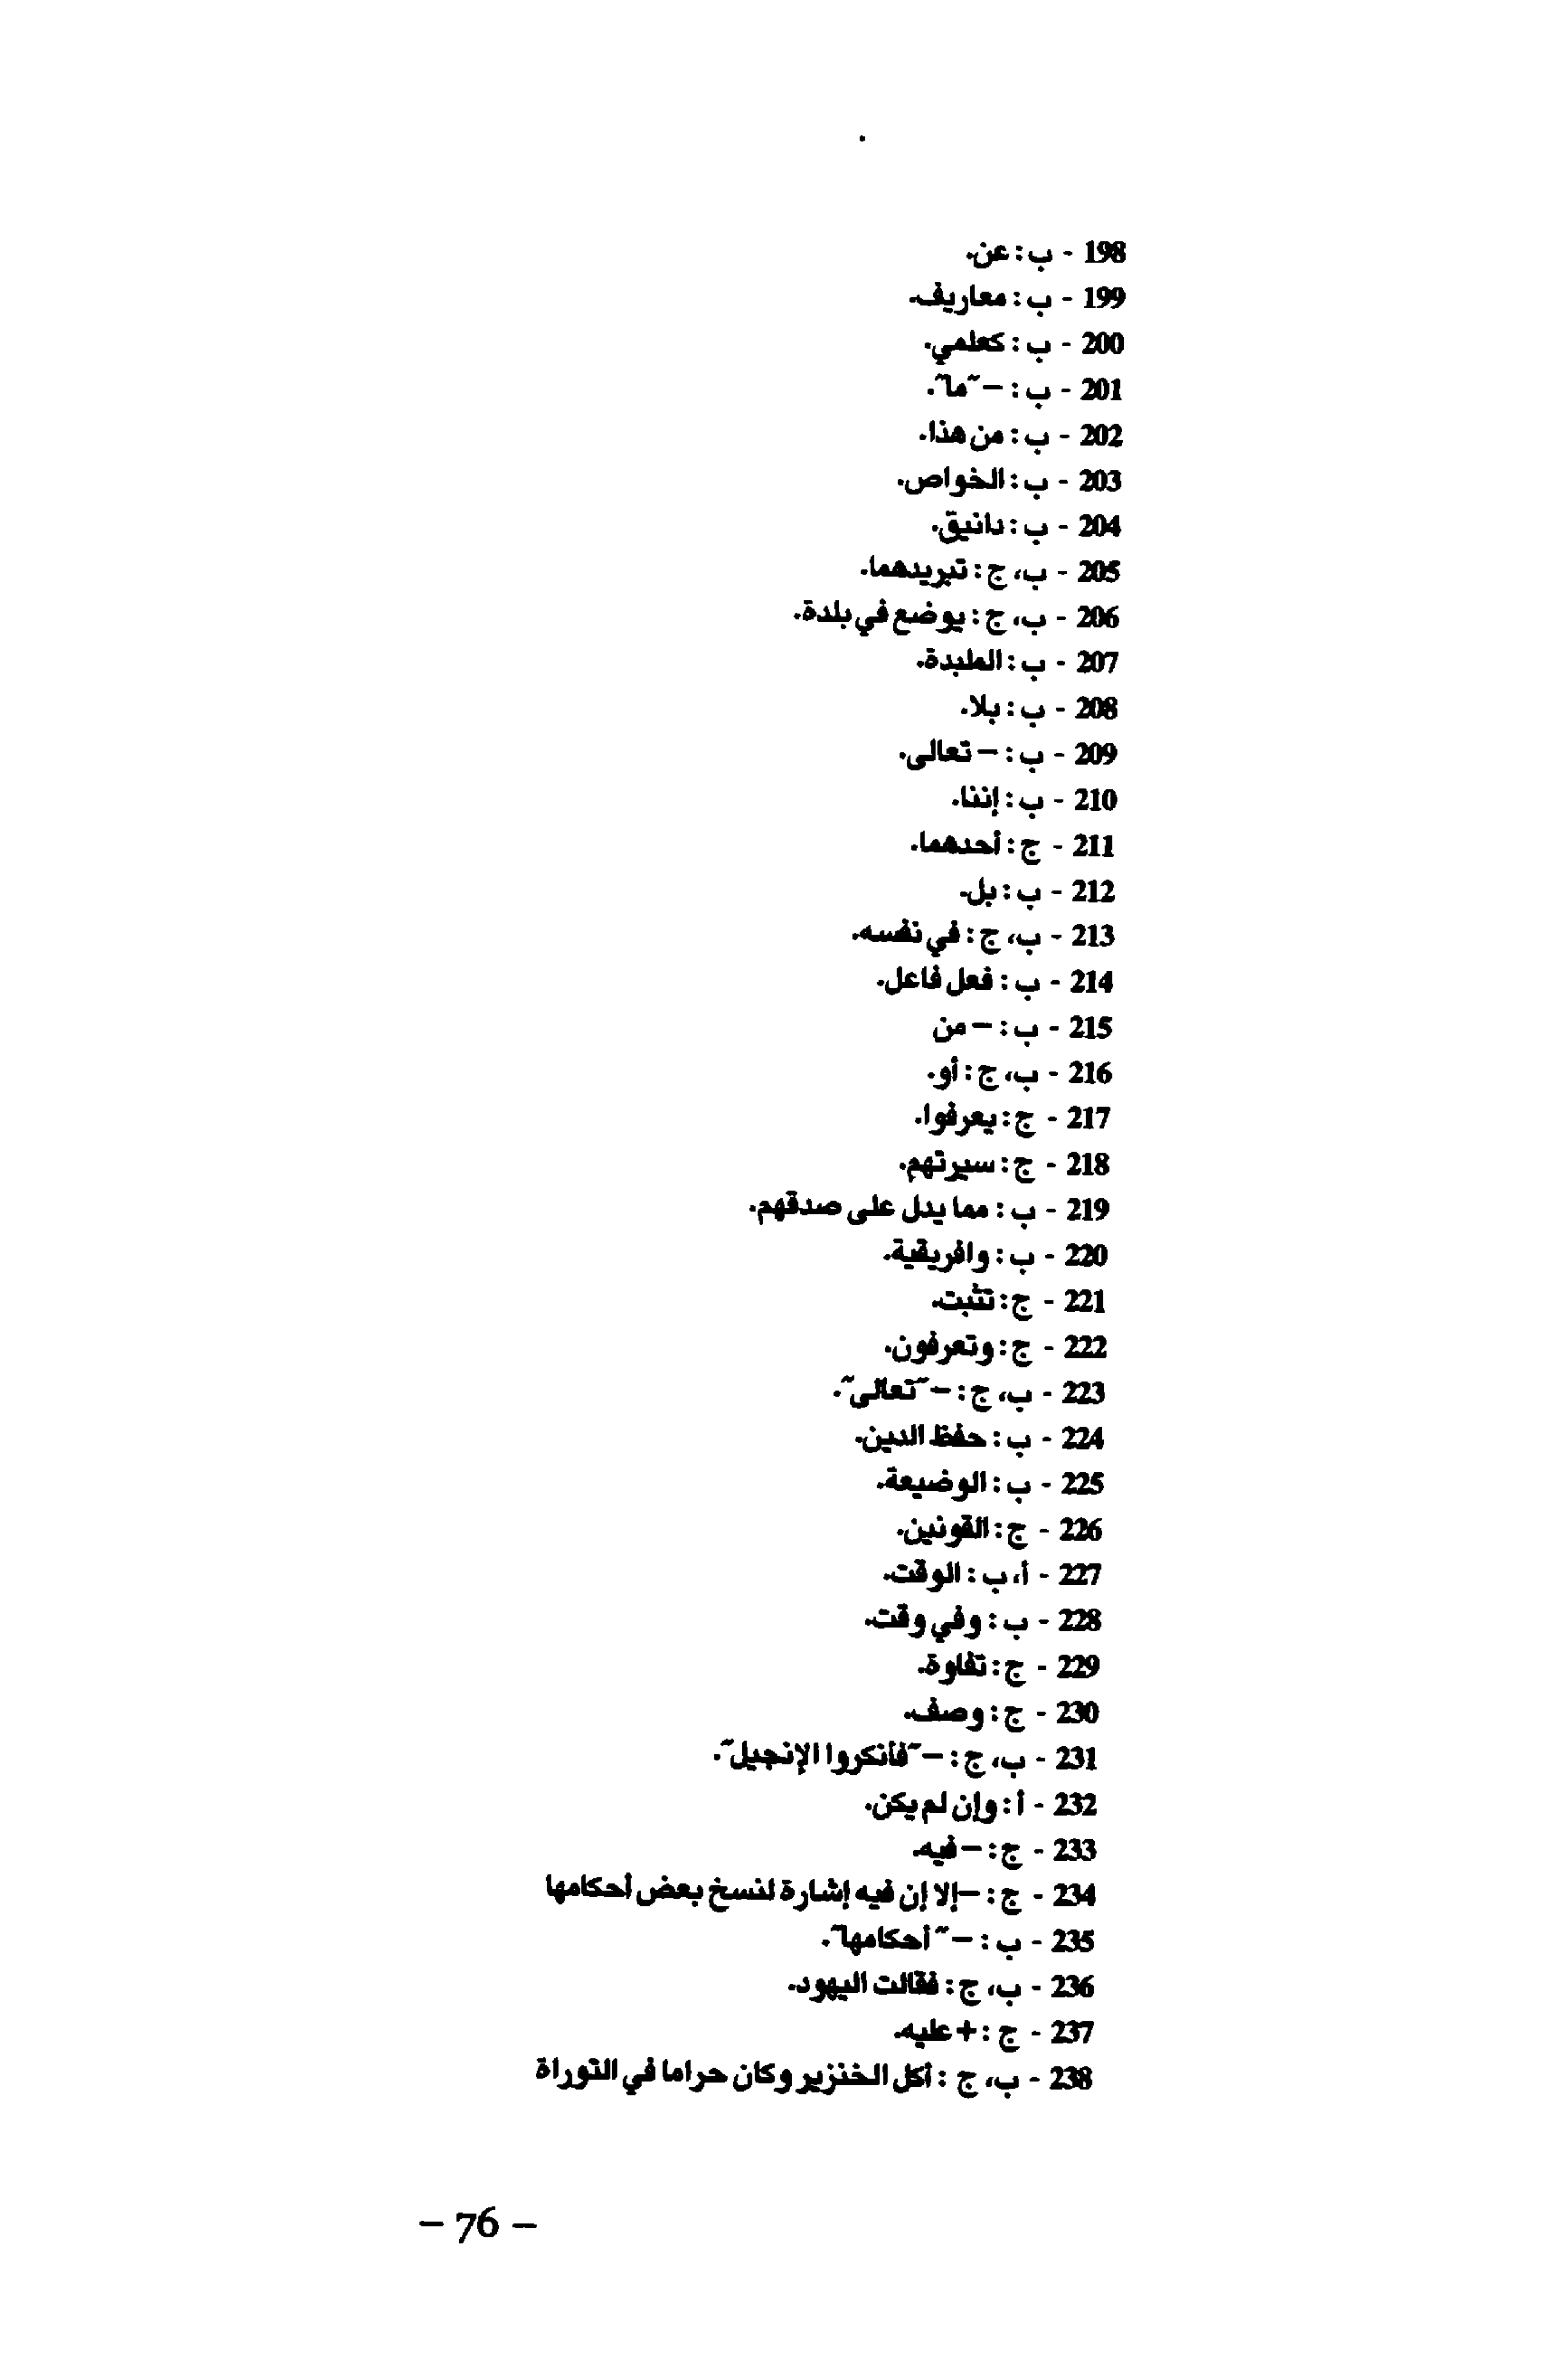 198 - ب : عن.
199 - ب : معاريف.
200 - ب : كعلمي.
201 - ب : – "ما".
202 - ب : من هذا.
203 - ب : الخواص.
204 - ب : دانيق.
205 - ب، ج : تبريدهما.
206 - ب، ج : يوضع في بلدة.
207 - ب : الطبدة.
208 - ب : بلا.
209 - ب : – تعالى.
210 - ب : إننا.
211 - ج : أحدهما.
212 - ب : بل.
213 - ب، ج : في نفسه.
214 - ب : فعل فاعل.
215 - ب : – من
216 - ب، ج : أو.
217 - ج : يعرفوا.
218 - ج : سيرتهم.
219 - ب : مما يدل على صدقهم.
220 - ب : وافريقية.
221 - ج : تثبت.
222 - ج : وتعرفون.
223 - ب، ج : – "تعالى".
224 - ب : حفظ الدين.
225 - ب : الوضيعة.
226 - ج : القونين.
227 - أ، ب : الوقت.
228 - ب : وفي وقت.
229 - ج : تفاوة.
230 - ج : وصف.
231 - ب، ج : – "فأنكروا الإنجيل".
232 - أ : وإن لم يكن.
233 - ج : – فيه.
234 - ج : –إلا إن فيه إشارة لنسخ بعض أحكامها
235 - ب : – " أحكامها".
236 - ب، ج : فقالت اليهود.
237 - ج : + عليه.
238 - ب، ج : أكل الخنزير وكان حراما في التوراة
– 76 –